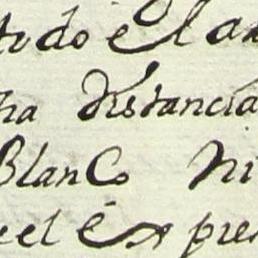 tudo el an
na distancia
Blanco ni
eel expres